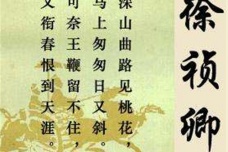 徐祯卿
深山曲路见桃花，
马上匆匆日又斜。
可奈玉鞭留不住，
又衔春恨到天涯。